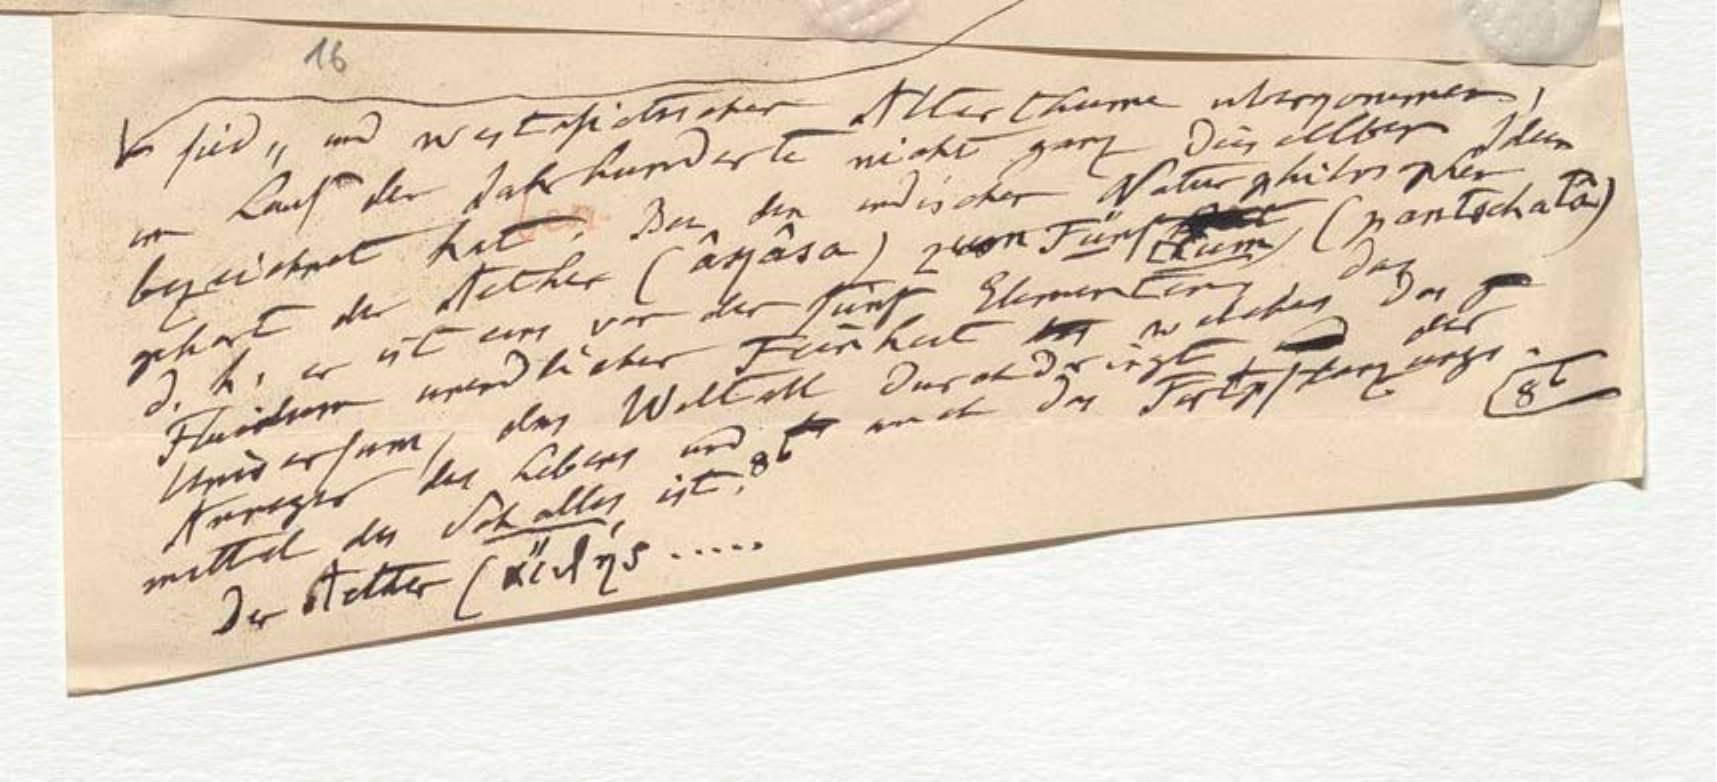 16
süd- und westasiatischer Alterthume übergekommen,
im Lauf der Jahrhunderte nicht ganz dieselben Ideen
bezeichnet hat. Bei den indischer Naturphilosophen
gehört der Aether (âkâsa) zum Fünfthum (pantschatâ)
d. h. er ist eins von der fünf Elementen, das
Fluidum unendlicher Feinheit welches das
Universum, das Weltall durchdringt der
Anreger des Lebens und auch das Fortpflanzungs-
mittel des Schalles ist. 8b
8b
Der Aether (ἀΐδης .....